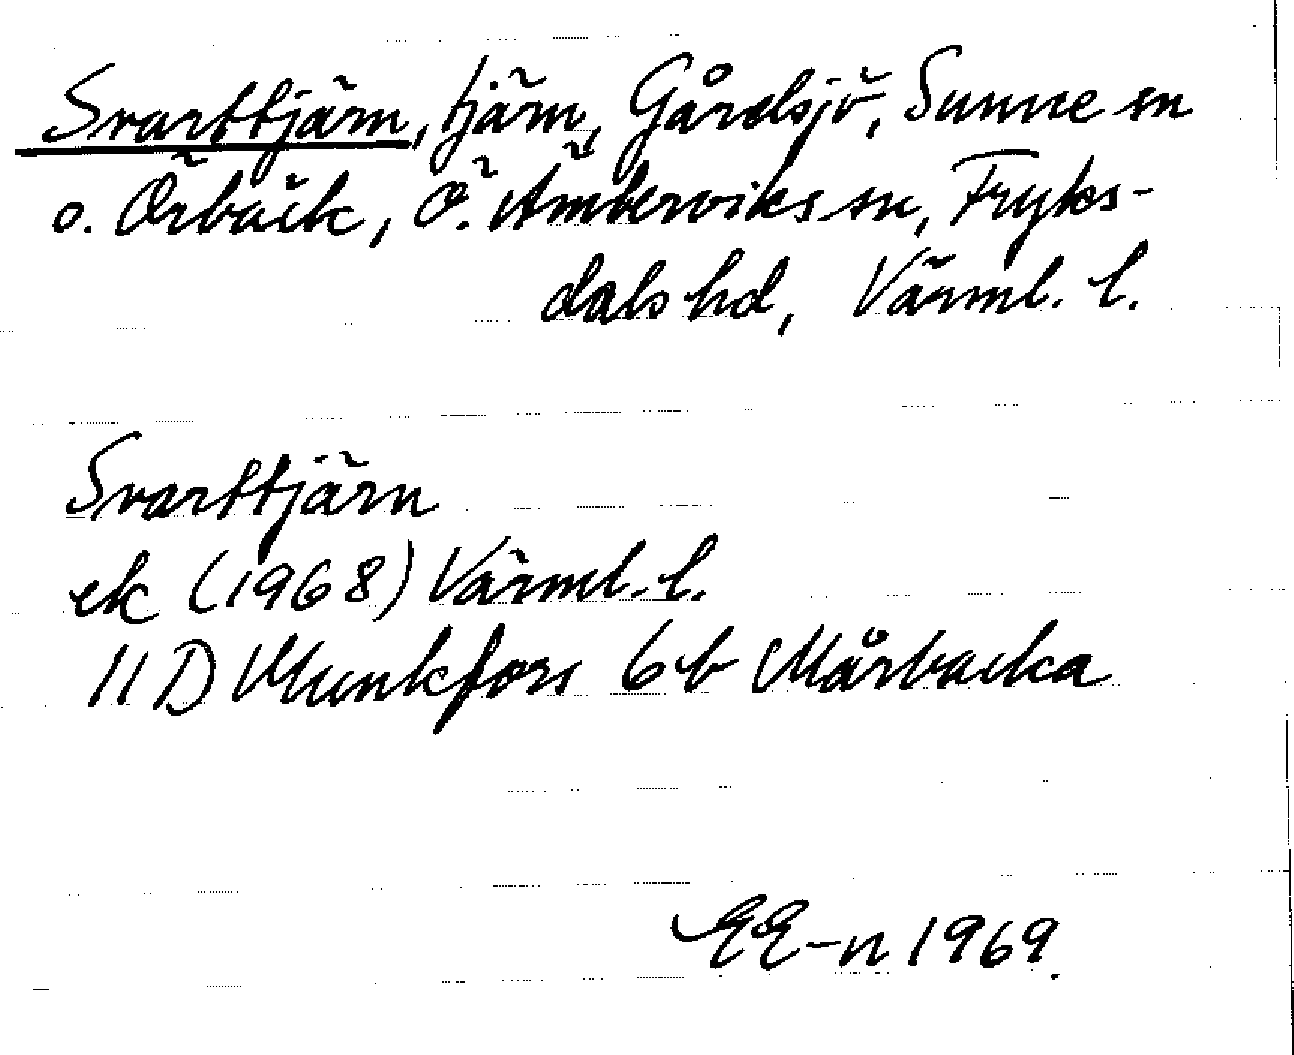 Svarttjärn, tjärn, Gårdsjö, Sunne sn
o. Örbäck, Ö. Ämterviks sn, Fryks-
dals hd, Värml. l.
Svarttjärn
ek (1968) Värml. l.
11 D Munkfors 6b Mårbacka
EE-n 1969.